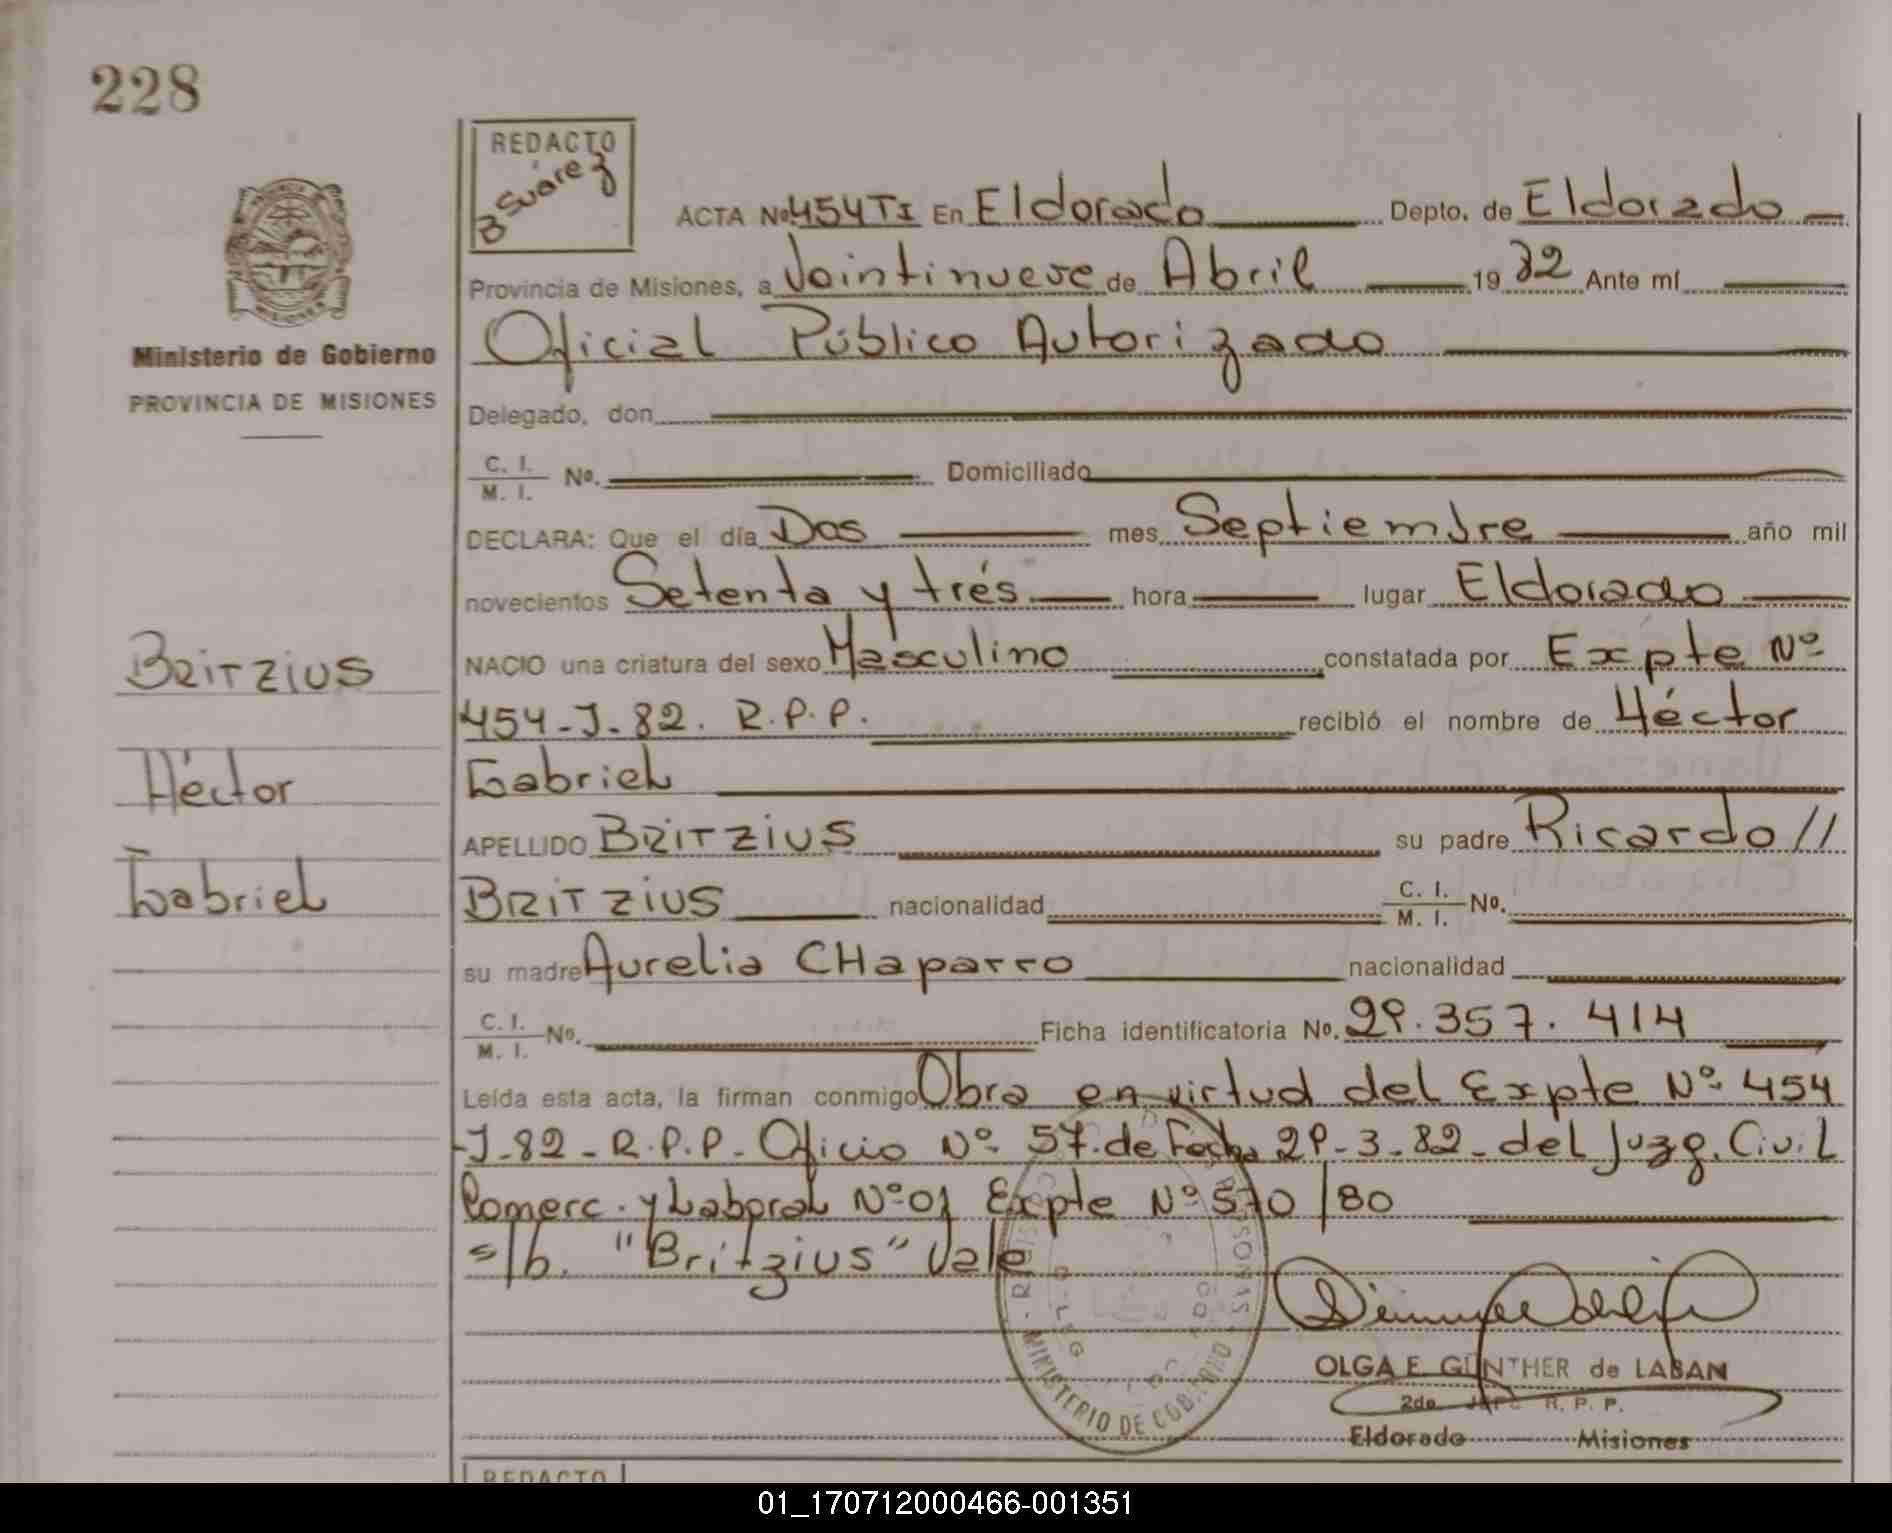 228
REDACTO
B Suárez
ACTA No 454TI En Eldorado Depto. de Eldorado
Provincia de Misiones, a Veintinueve de Abril 19 82 Ante mí
Oficial Público Autorizado
Ministerio de Gobierno
PROVINCIA DE MISIONES
Delegado, don
C. I. / M. I. No. Domiciliado
DECLARA: Que el día Dos mes Septiembre año mil
novecientos Setenta y trés hora lugar Eldorado
Britzius
NACIO una criatura del sexo Masculino constatada por Expte Nº
454-J-82. R.P.P. recibió el nombre de Héctor
Héctor
Gabriel
APELLIDO BRITZIUS su padre Ricardo //
Gabriel
BRITZIUS nacionalidad C. I. / M. I. No.
su madre Aurelia CHaparro nacionalidad
C. I. / M. I. No. Ficha identificatoria No. 29.357.414
Leída esta acta, la firman conmigo Obra en virtud del Expte Nº 454
-J-82-R.P.P- Oficio Nº 57.de Fecha 29-3-82-del Juzg. Civil
Comerc. y Laboral Nº01 Expte Nº 570/80
s/b. "Britzius" Vale
MINISTERIO DE GOBIERNO
OLGA E. GÜNTHER de LABAN
2do. JEFE R. P. P.
Eldorado Misiones
REDACTO
01_170712000466-001351